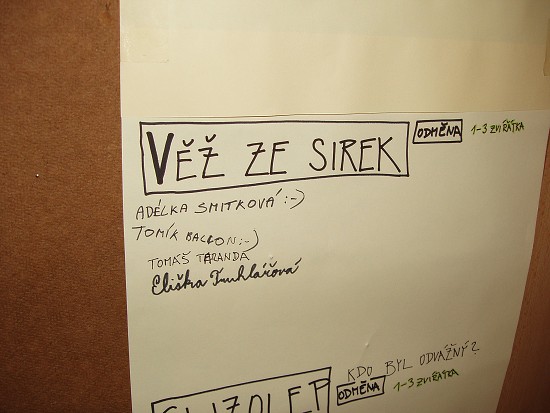 VĚŽ ZE SIREK ODMĚNA 1-3 ZVÍŘÁTKA
ADÉLKA SMITKOVÁ :-)
TOMÍK BALLON :-)
TOMÁŠ TARANDA
Eliška Truhlářová
KDO BYL ODVÁŽNÝ?
SLIZOLEP ODMĚNA 1-3 ZVÍŘÁTKA